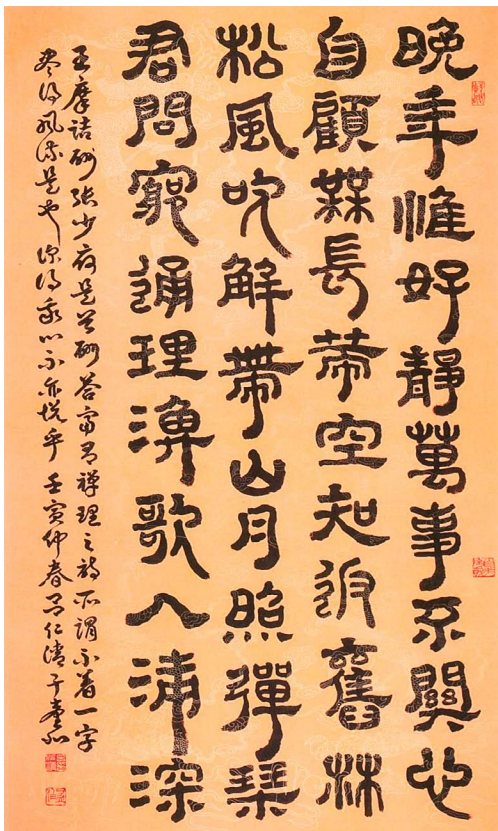 晚年惟好靜萬事不關心
自顧無長策空知返舊林
松風吹解帶山月照彈琴
君問窮通理漁歌入浦深
王摩詰酬張少府是首酬答富有禪理之詩所謂不着一字
盡得風流是也深得我心不亦悅乎壬寅仲春呂仁清于臺北